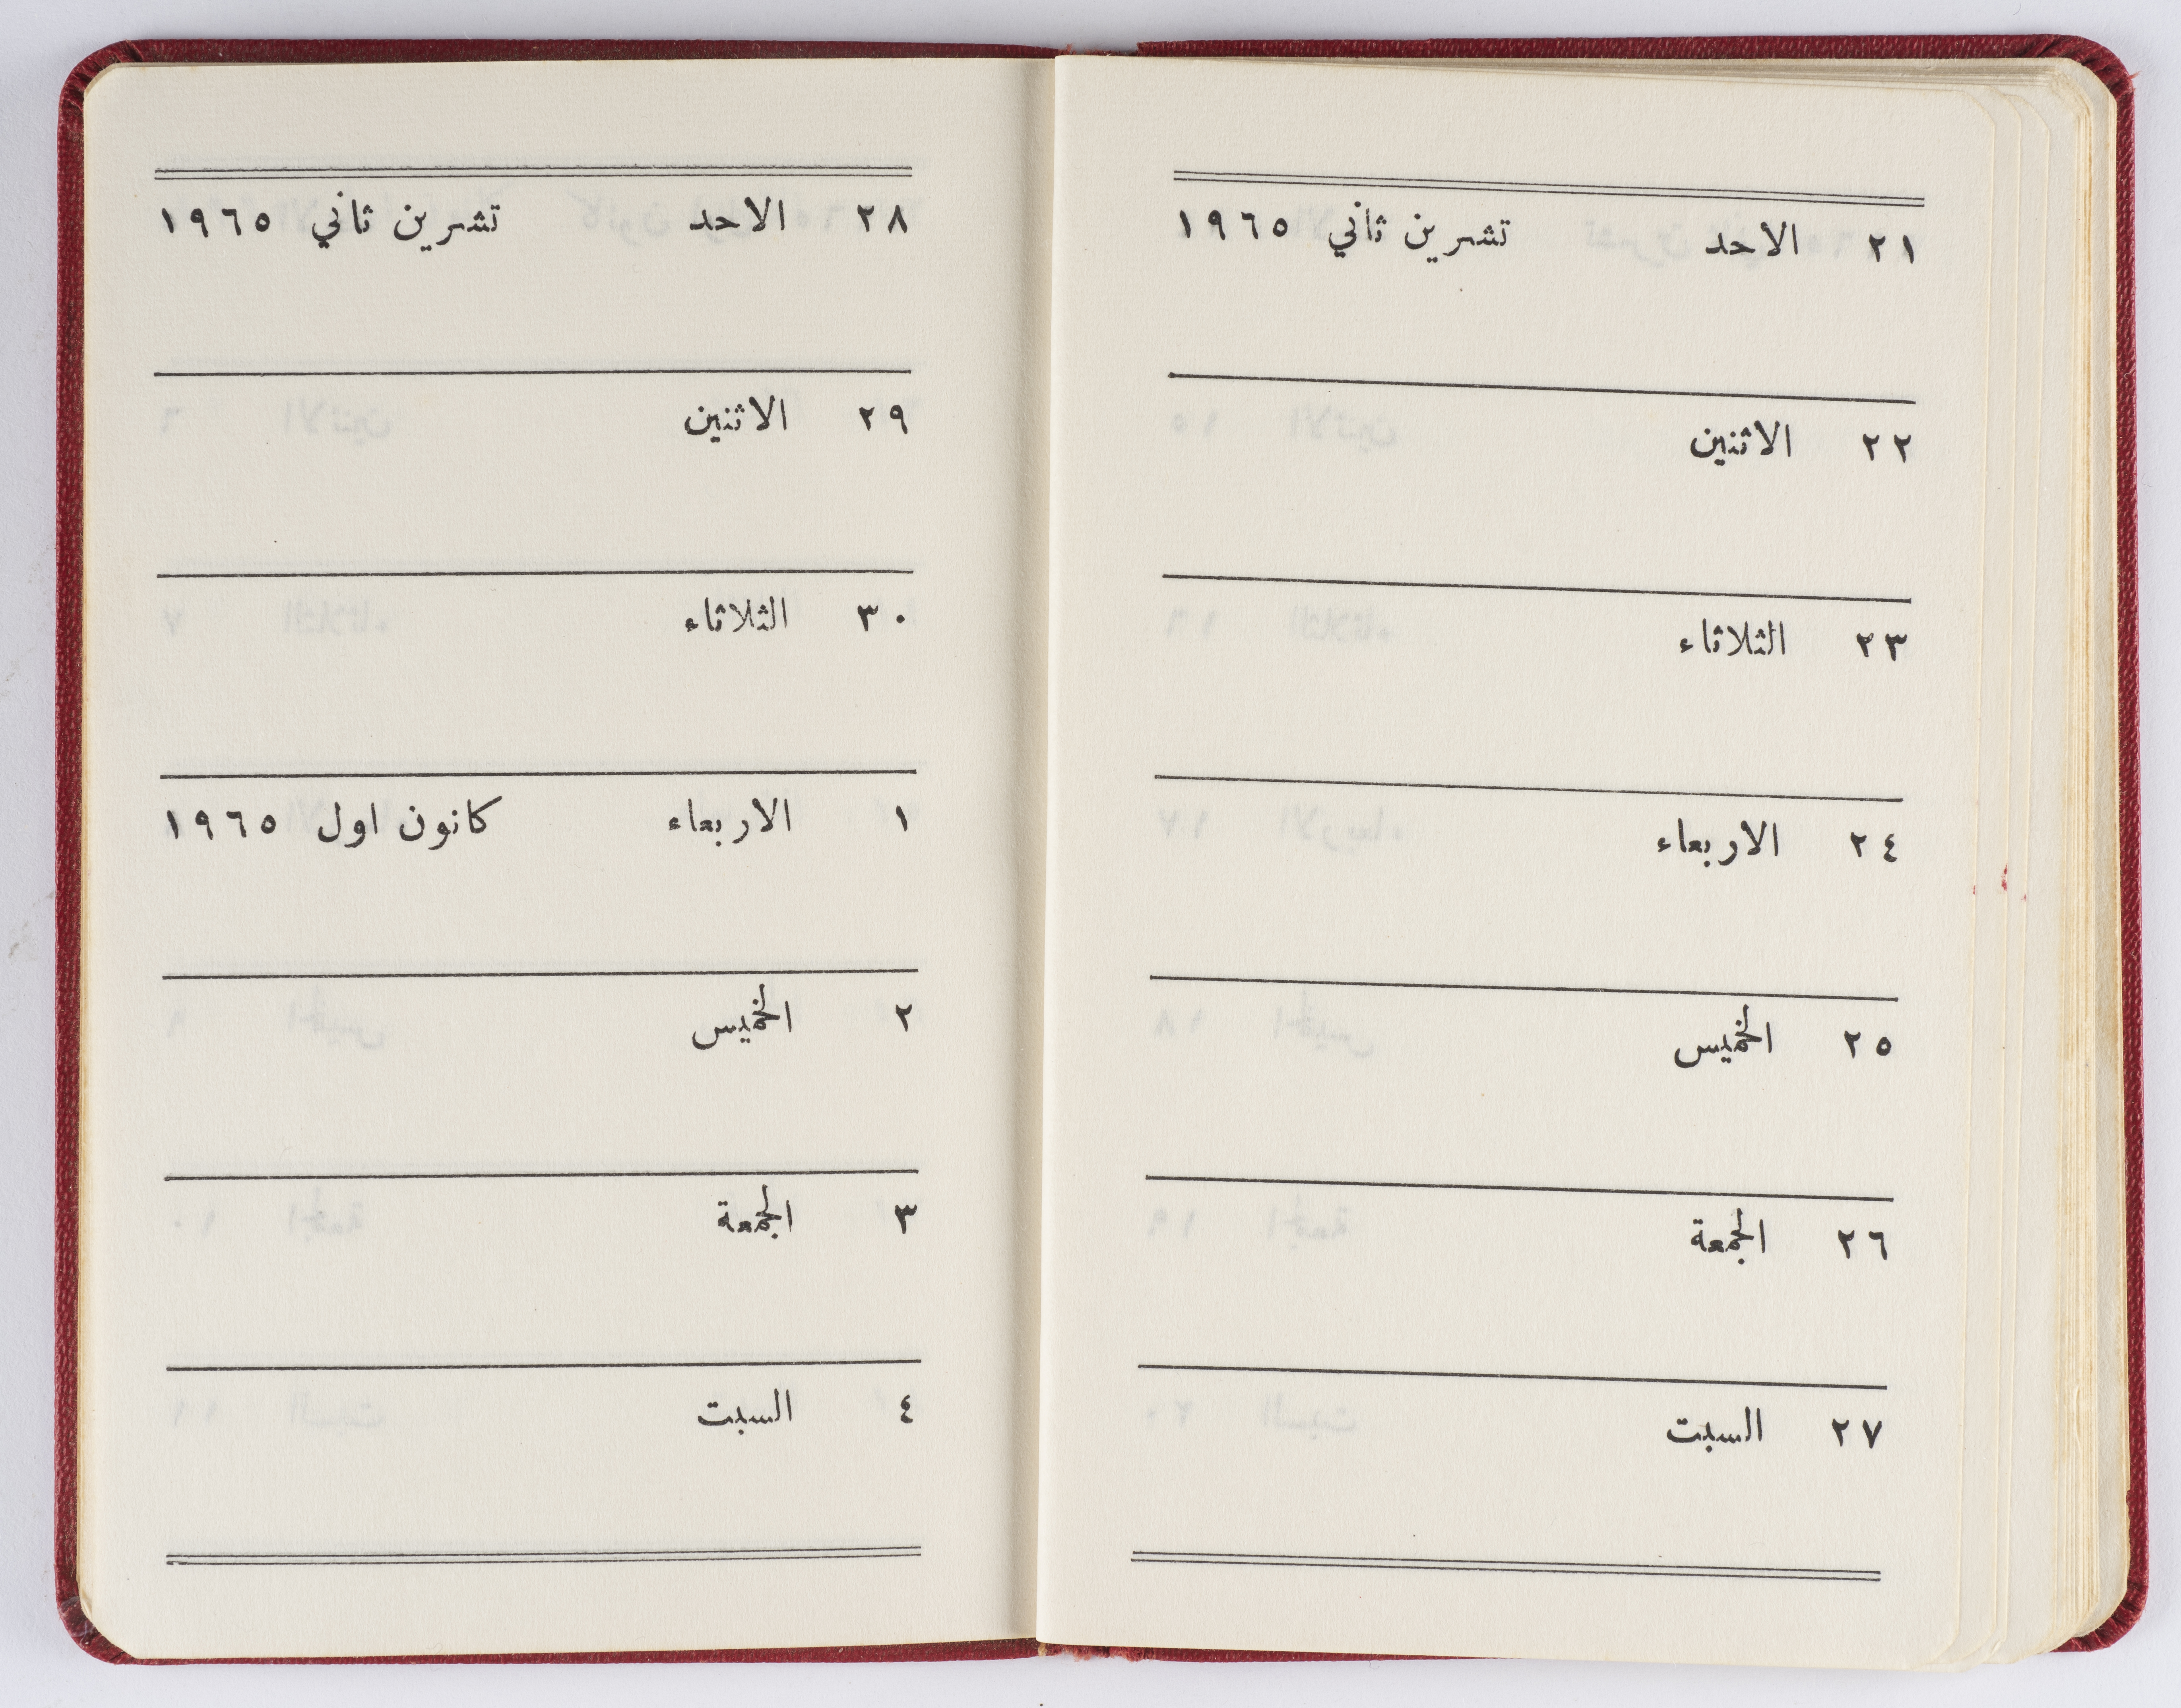 ٢١ الاحد تشرين ثاني ١٩٦٥
٢٢ الاثنين
٢٣ الثلاثاء
٢٤ الاربعاء
٢٥ الخميس
٢٦ الجمعة
٢٧ السبت
٢٨ الاحد تشرين ثاني ١٩٦٥
٢٩ الاثنين
٣٠ الثلاثاء
١ الاربعاء كانون اول ١٩٦٥
٢ الخميس
٣ الجمعة
٤ السبت